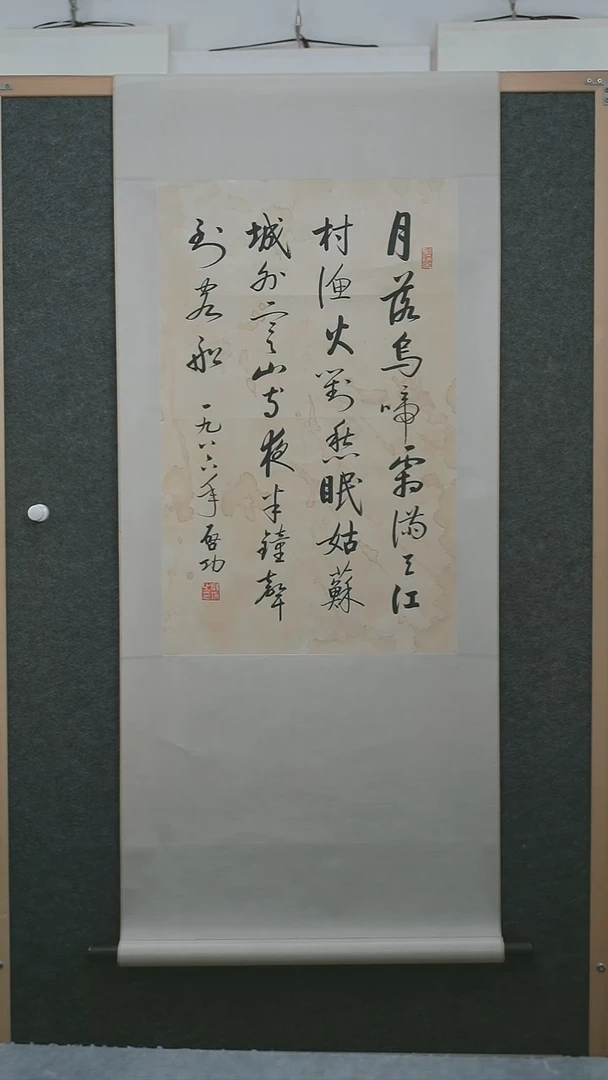 月落烏啼霜滿天江
村渔火對愁眠姑蘇
城外寒山寺夜半鐘聲
到客船 一九八六年 启功